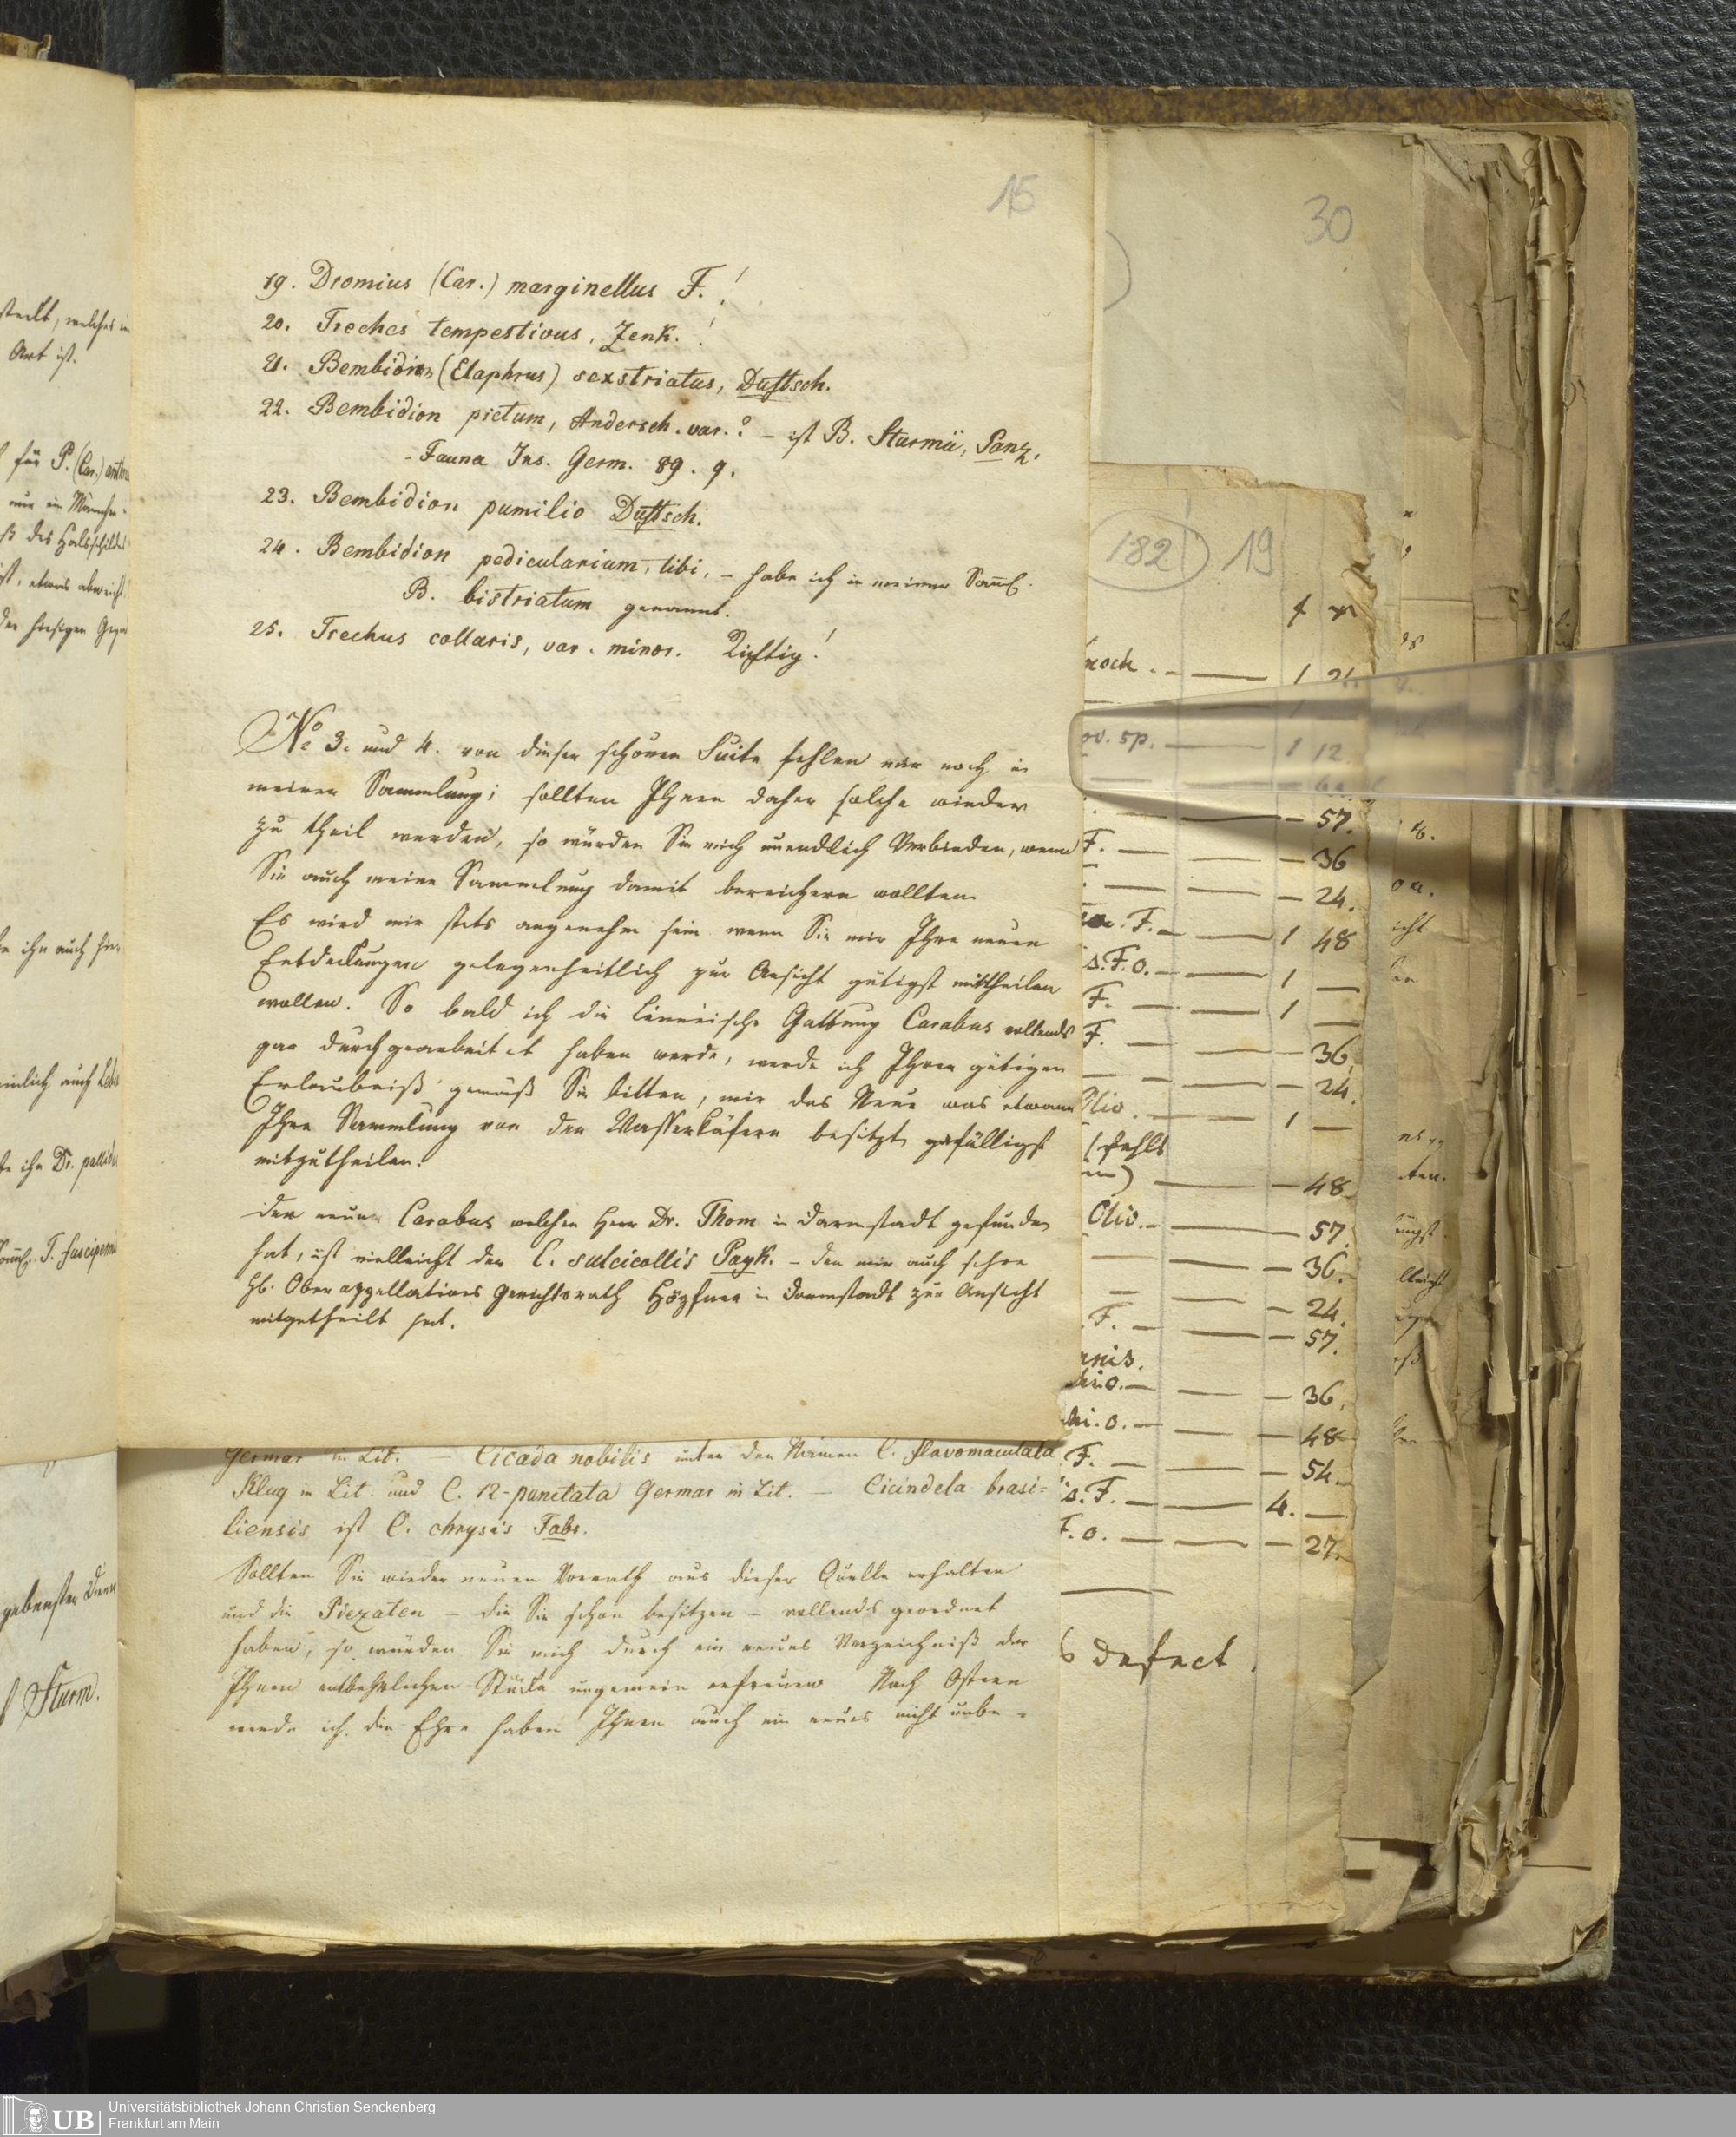 15
19. Dromius (Car.) marginellus F.!
20. Treches tempestivus, Zenk.!
21. Bembidion (Elaphrus) sexstriatus, Duftsch.
22. Bembidion pictum, Andersch. var.? – ist B. Sturmii, Panz.
Fauna Ins. Germ. 89. 9.
23. Bembidion pumilio Duftsch.
24. Bembidion pedicularium, tibi, – habe ich in meiner Samml.
B. bistriatum genannt.
25. Trechus collaris, var. minor. Richtig!
No 3. und 4. von dieser schönen Suite fehlen mir noch in
meiner Sammlung; sollten Ihnen daher solche wieder
zu theil werden, so würden Sie mich unendlich verbinden, wenn
Sie auch meine Sammlung damit bereichern wollten.
Es wird mir stets angenehm sein wenn Sie mir Ihre neuen
Entdeckungen gelegenheitlich zur Ansicht gütigst mittheilen
wollen. So bald ich die Linneische Gattung Carabus vollends
gar durchgearbeitet haben werde, werde ich Ihrer gütigen
Erlaubniß gemäß Sie bitten, mir das Neue was etwann
Ihre Sammlung von den Wasserkäfern besitzt, gefälligst
mitzutheilen.
Der neue Carabus welchen Herr Dr. Thom in Darmstadt gefunden
hat, ist vielleicht der C. sulcicollis Payk. – den mir auch schon
H. Oberappellations Gerichtsrath Höpfner in Darmstadt zur Ansicht
mitgetheilt hat.
Germar in Lit. – Cicada nobilis unter den Namen C. flavomaculata
Klug in Lit. und C. 12-punctata Germar in Lit. – Cicindela brasi=
liensis ist C. chrysis Fabr.
Sollten Sie wieder neuen Vorrath aus dieser Quelle erhalten
und die Piezaten – die Sie schon besitzen – vollends geordnet
haben, so würden Sie mich durch ein neues Verzeichniß der
Ihnen entbehrlichen Stücke ungemein erfreuen. Nach Ostern
werde ich die Ehre haben Ihnen auch ein neues nicht unbe-
30
182 19
noch. – 1 21
ov. sp. – 1 12.
57.
F. – 36
24.
F. – 1 48
s. F. o. – 1 –
F. – 1 –
F. – 36
24.
Oliv. – 1 –
(fehlt
48
Oliv. – 57.
36.
24.
F. – 57.
nnis.
36.
48
F. – 54
s. F. – 4. –
F. o. – 27.
defect.
Art ist.
für P. (Car.)
nur ein
des Halsschildes
etwas
der hiesigen
ihn auch
auch
ihn Dr. pallid
T. fuscipenn
Sturm.
UB Universitätsbibliothek Johann Christian Senckenberg
Frankfurt am Main